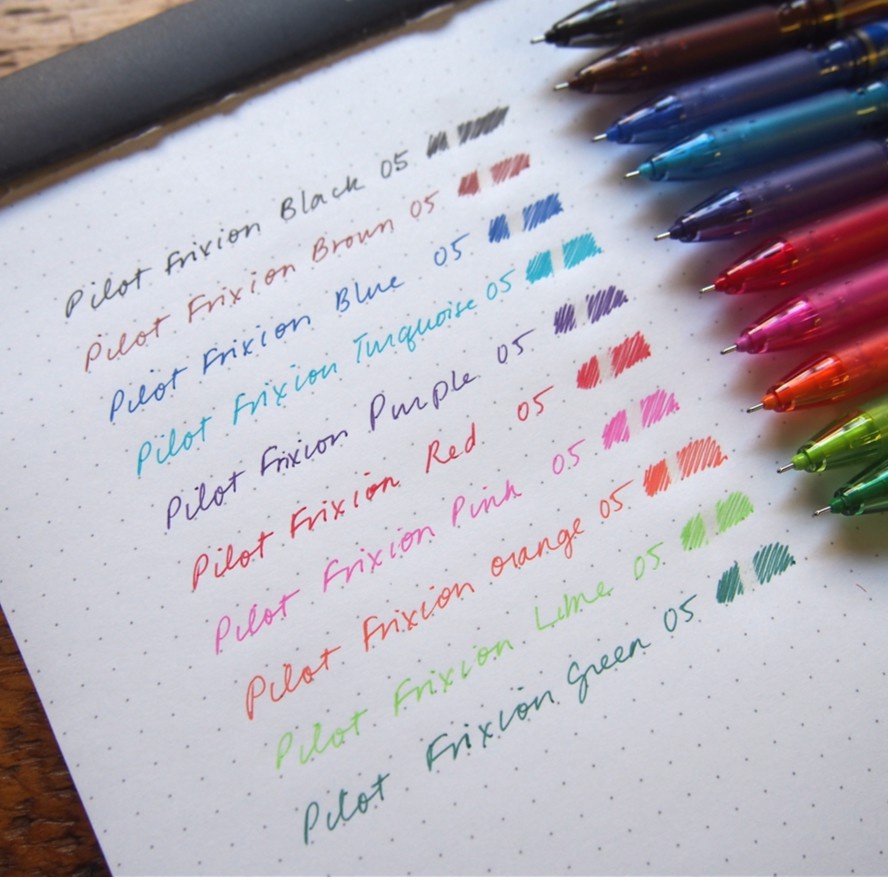 Pilot Frixion Black 05
Pilot Frixion Brown 05
Pilot Frixion Blue 05
Pilot Frixion Turquoise 05
Pilot Frixion Purple 05
Pilot Frixion Red 05
Pilot Frixion Pink 05
Pilot Frixion Orange 05
Pilot Frixion Lime 05
Pilot Frixion Green 05